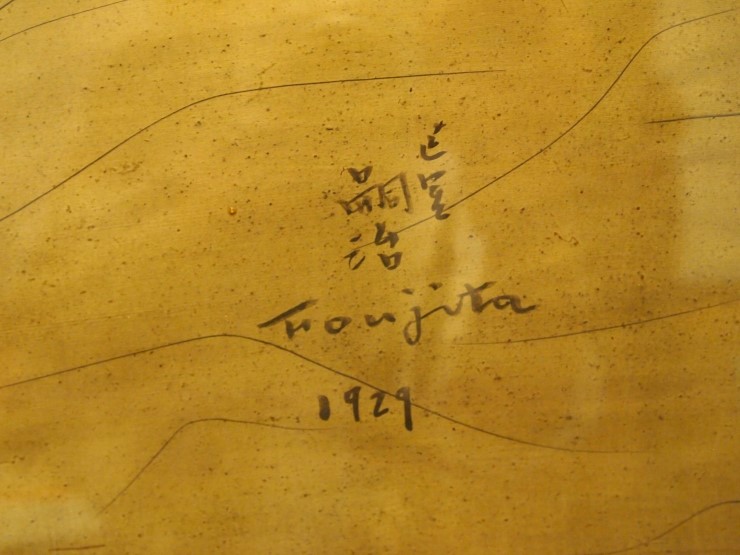 巴里
嗣治
Foujita
1929